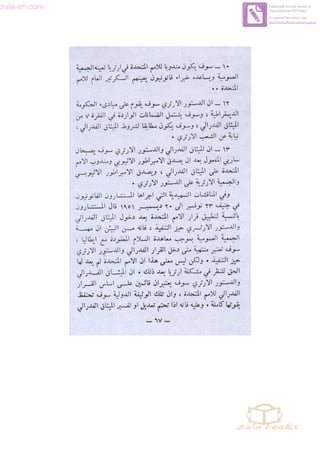 zula-eri.com
١٠ – سوف يكون مندوبا للامم المتحدة في ارتريا تعينه الجمعية
العمومية ويساعده خبراء قانونيون يعينهم السكرتير العام للامم
المتحدة ٠٠
١٢ – ان الدستور الارتري سوف يقوم على مبادىء الحكومة
الديمقراطية ، وسوف يشتمل الضمانات الواردة في الفقرة ٧ من
الميثاق الفدرالي ، وسوف يكون مطابقا لشروط الميثاق الفدرالي ،
نيابة عن الشعب الارتري ٠
١٣ – ان الميثاق الفدرالي والدستور الارتري سوف يصبحان
ساريي المفعول بعد ان يصدق الامبراطور الاثيوبي ومندوب الامم
المتحدة على الميثاق الفدرالي ، ويصدق الامبراطور الاثيوبي
والجمعية الارترية على الدستور الارتري ٠
وفي المناقشات التمهيدية التي اجراها المستشارون القانونيون
في جنيف ٢٣ نوفمبر الى ٢٠ ديسمبر ١٩٥٦ قال المستشارون
بالنسبة لتطبيق قرار الامم المتحدة بعد دخول الميثاق الفدرالي
والدستور الارتري حيز التنفيذ ، فانه من البيّن ان مهمة
الجمعية العمومية بموجب معاهدة السلام المعقودة مع ايطاليا ،
سوف تعتبر منتهية متى دخل القرار الفدرالي والدستور الارتري
حيز التنفيذ ٠ ولكن ليس معنى هذا ان الامم المتحدة لم يعد لها
الحق للنظر في مشكلة ارتريا بعد ذلك ٠ ان الميثاق الفدرالي
والدستور الارتري سوف يعتبران قائمين على اساس القرار
الفدرالي للامم المتحدة ، وان تلك الوثيقة الدولية سوف تحتفظ
بقوتها كاملة ٠ وعليه فانه اذا تحتم تعديل او تفسير الميثاق الفدرالي
– ٦٧ –
zula books